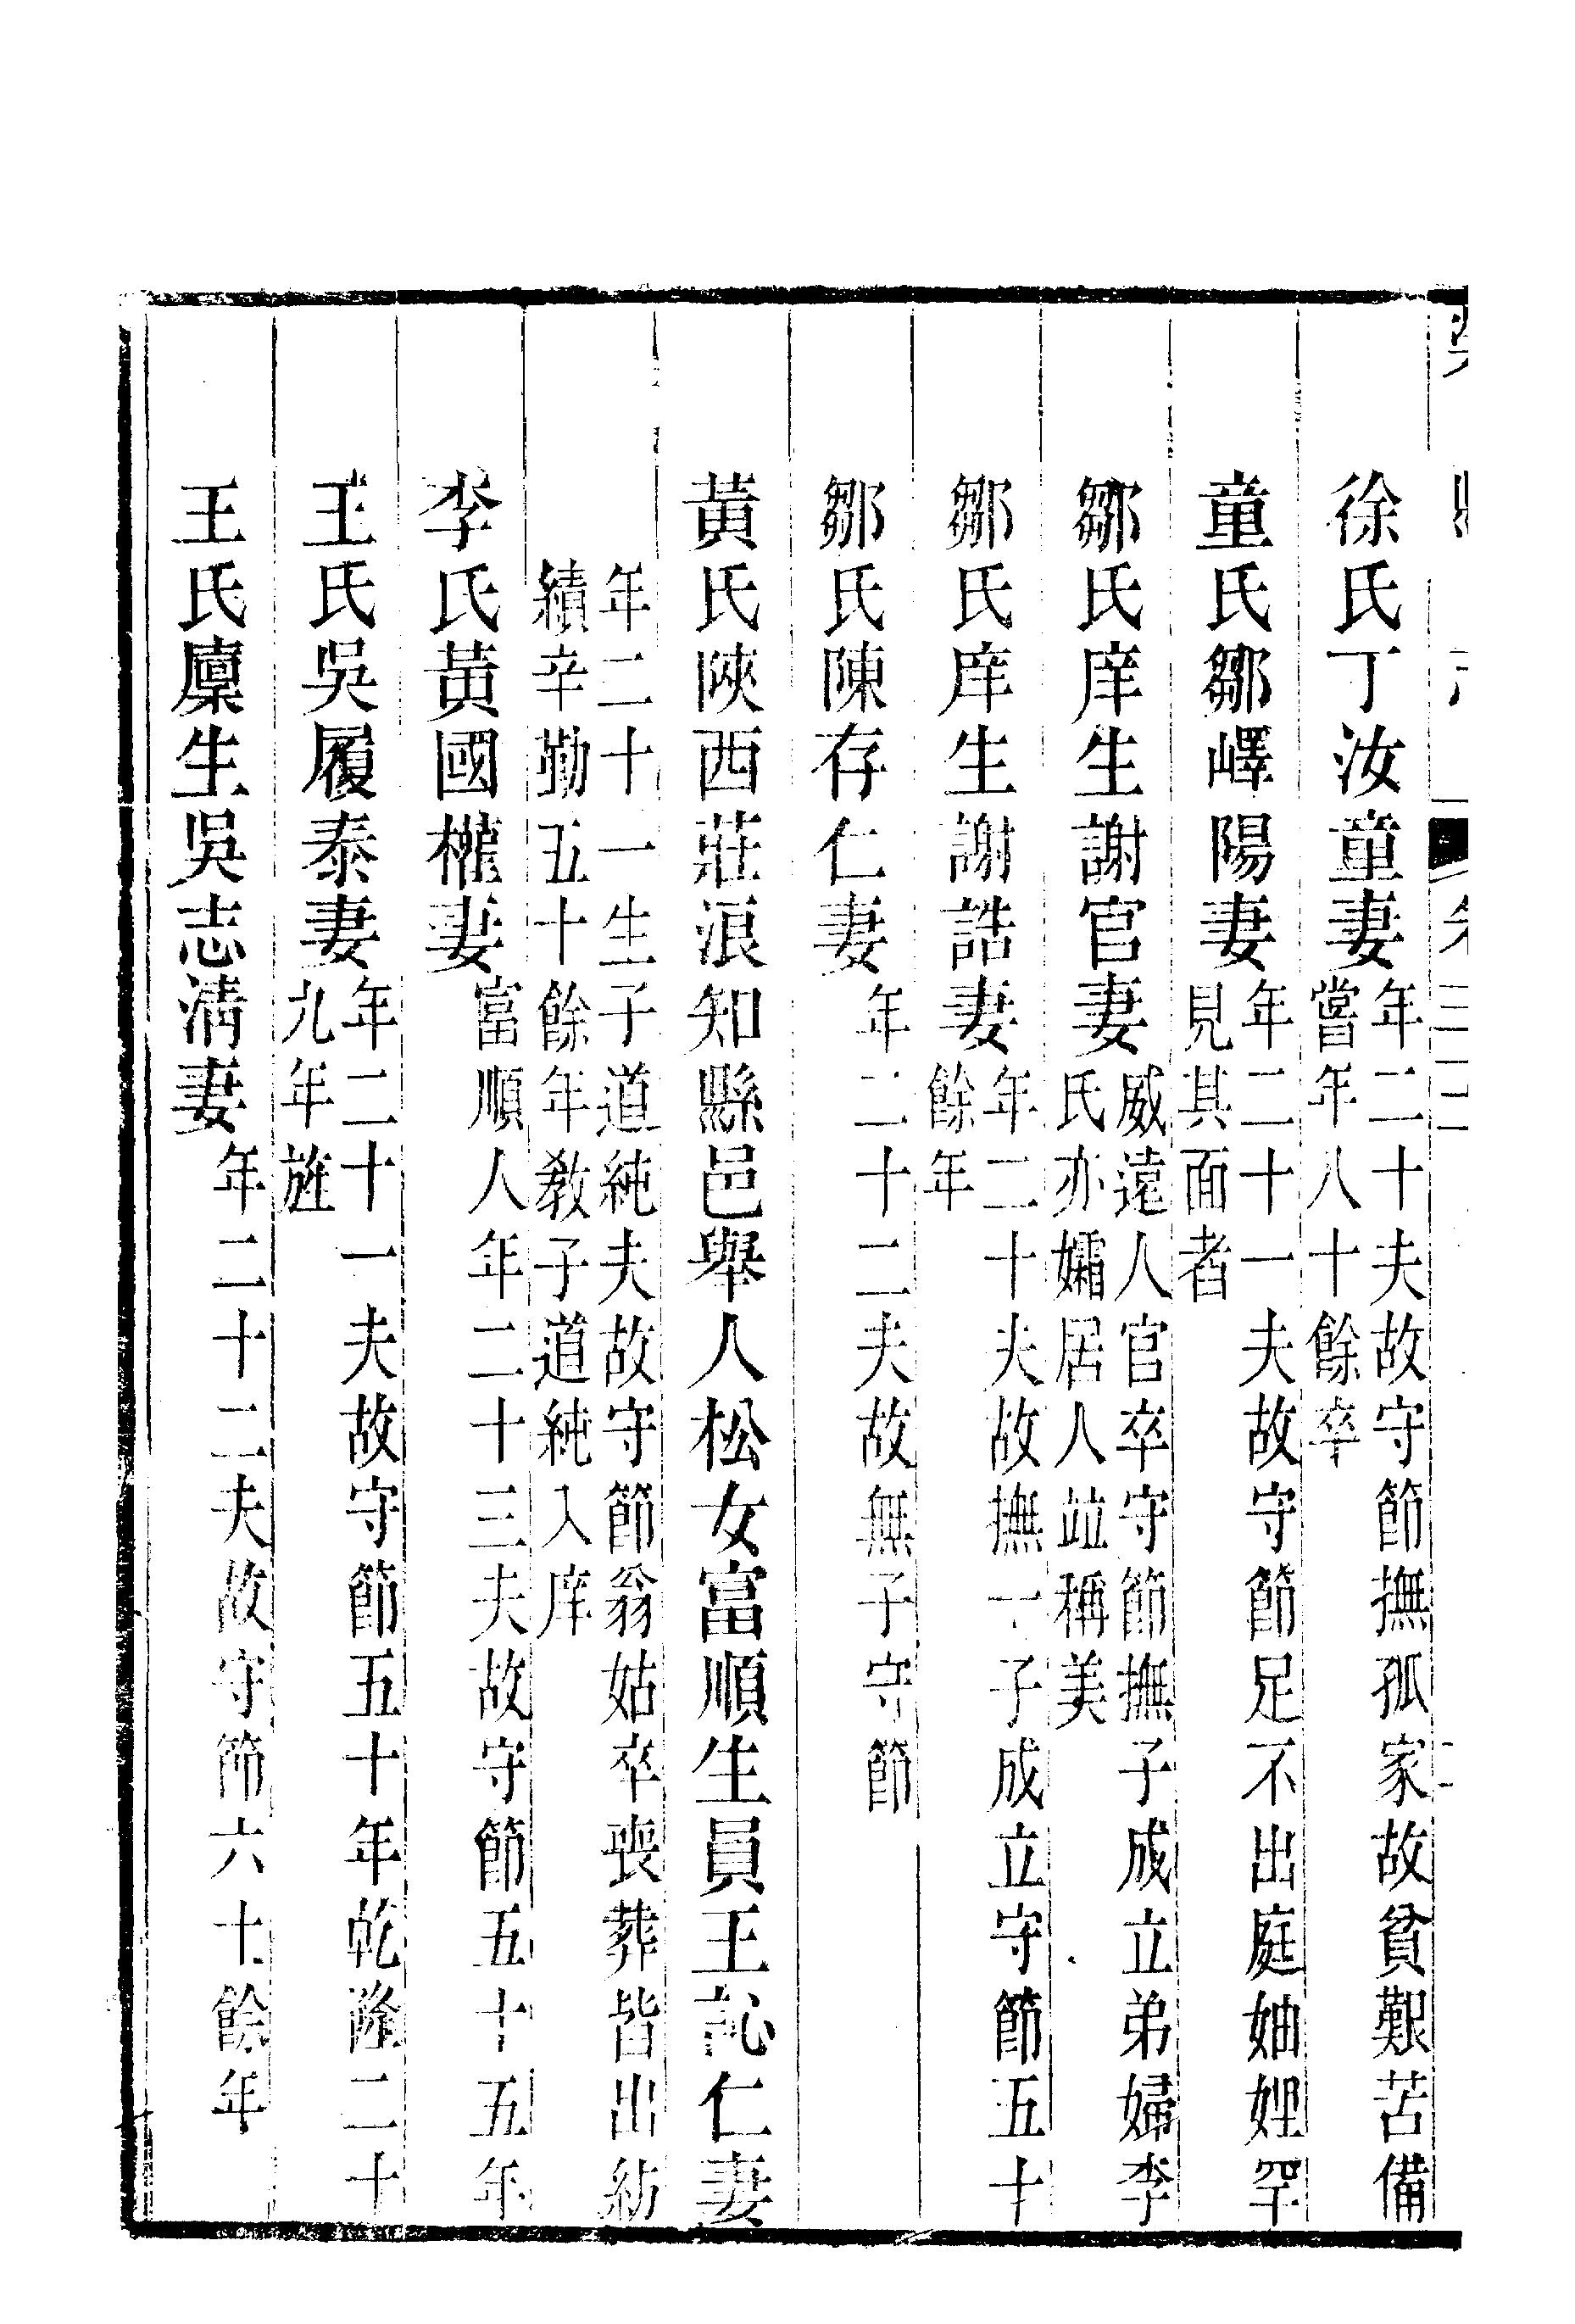 徐氏丁汝童妻年二十夫故守節撫孤家故貧艱苦備
嘗年八十餘卒
童氏鄒嶧陽妻年二十一夫故守節足不出庭妯娌罕
見其面者
鄒氏庠生謝官妻威遠人官卒守節撫子成立弟婦李
氏亦孀居人竝稱美
鄒氏庠生謝誥妻年二十夫故撫一子成立守節五十
餘年
鄒氏陳存仁妻年二十二夫故無子守節
黃氏陝西莊浪知縣邑舉人松女富順生員王訫仁妻
年二十一生子道純夫故守節翁姑卒喪葬皆出紡
績辛勤五十餘年教子道純入庠
李氏黃國權妻富順人年二十三夫故守節五十五年
王氏吳履泰妻年二十一夫故守節五十年乾隆二十
九年旌
王氏廩生吳志淸妻年二十二夫故守節六十餘年